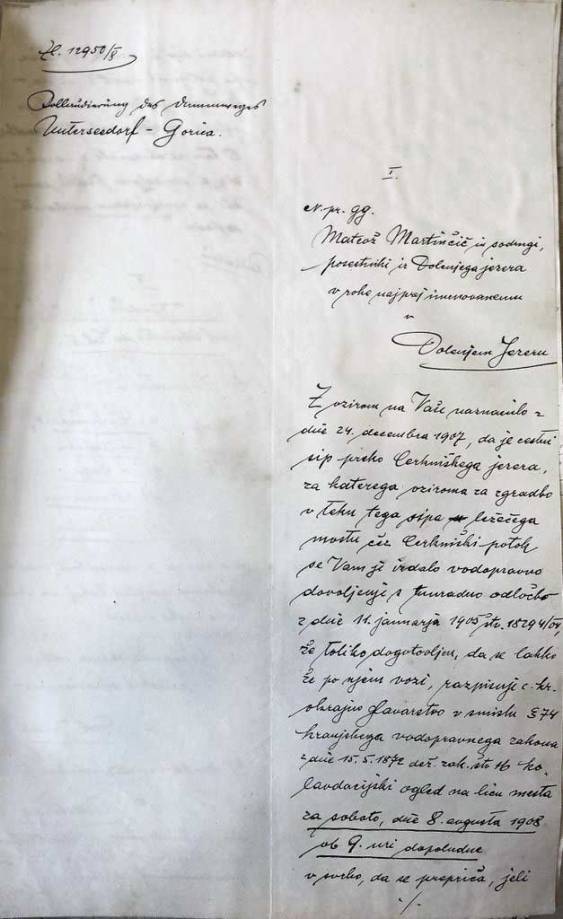 Zl. 12950/8
Kollaudierung des Dammweges
Unterseedorf - Gorica.
I.
N. pr. gg.
Mateož Martinčič in sodrugi,
posestniki iz Dolenjega jezera
v roke najprej imenovanemu
v
Dolenjem Jezeru
Z ozirom na Vaše naznanilo z
dné 24. decembra 1907, da je cestni
sip preko Cerkniškega jezera,
za katerega oziroma za zgradbo
v teku tega sipa ležečega
mostu čez Cerkniški potok
se Vam je izdalo vodopravno
dovoljenje s tuuradno odločbo
z dné 11. januarja 1905 štv. 18294/04,
že toliko dogotovljen, da se lahko
že po njem vozi, razpisuje c. kr.
okrajno glavarstvo v smislu § 74
kranjskega vodopravnega zakona
z dné 15. 5. 1872 dež. zak. štv 16 ko-
lavdacijski ogled na licu mesta
za soboto, dné 8. avgusta 1908
ob 9. uri dopoludne
v svrho, da se prepriča, jeli
./.